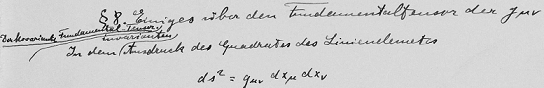 § 8. Einiges über den Fundamentaltensor der gμν
Der kovariante Fundamental-Tensor
Invarianten
In dem Ausdruck des Quadrates des Linienelementes
ds² = gμν dxμ dxν